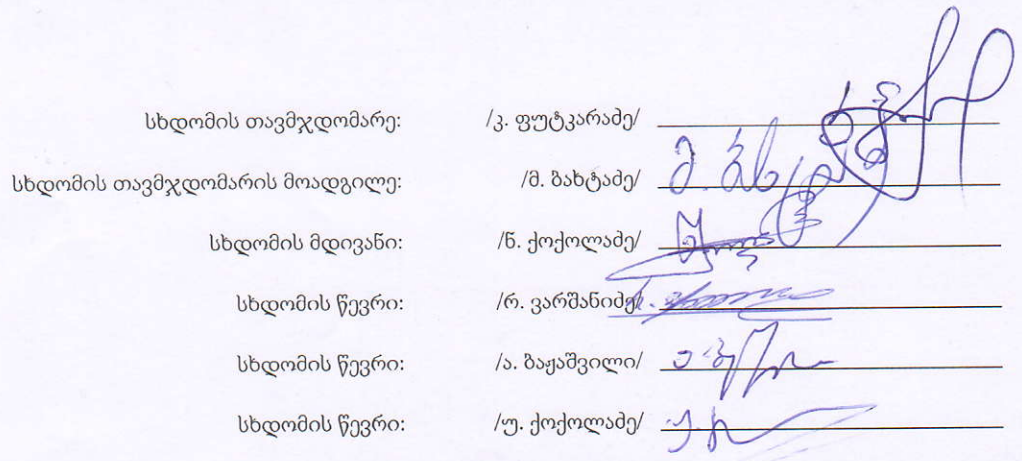 სხდომის თავმჯდომარე: /კ. ფუტკარაძე/
სხდომის თავმჯდომარის მოადგილე: /მ. ბახტაძე/ მ. ბახტაძე
სხდომის მდივანი: /ნ. ქოქოლაძე/
სხდომის წევრი: /რ. ვარშანიძე/
სხდომის წევრი: /ა. ბაჟაშვილი/
სხდომის წევრი: /უ. ქოქოლაძე/